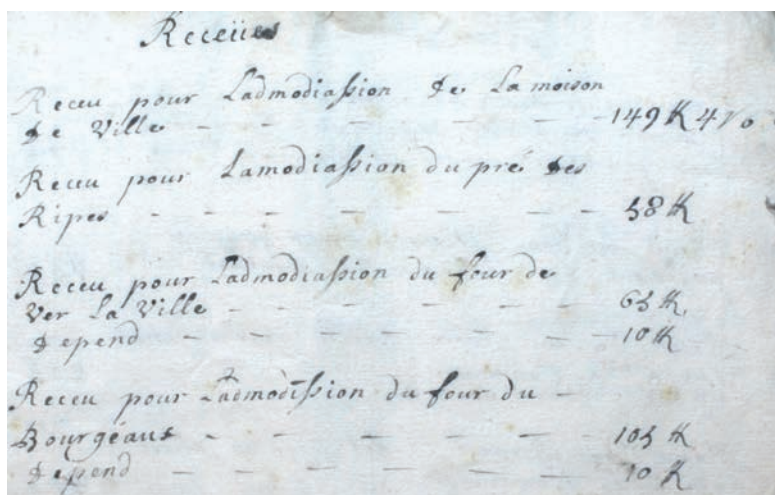 Receües
Receu pour Ladmodiassion de La moison
de Ville - - - - - - 149 ₶ 4 s 0
Receu pour Lamodiassion du pré des
Ripes - - - - - - - 58 ₶
Receu pour Ladmodiassion du four de
Ver La Ville - - - - - - 65 ₶
depend - - - - - - - 10 ₶
Receu pour Ladmodission du four du -
Bourgeaus - - - - - - 105 ₶
depend - - - - - - - 10 ₶